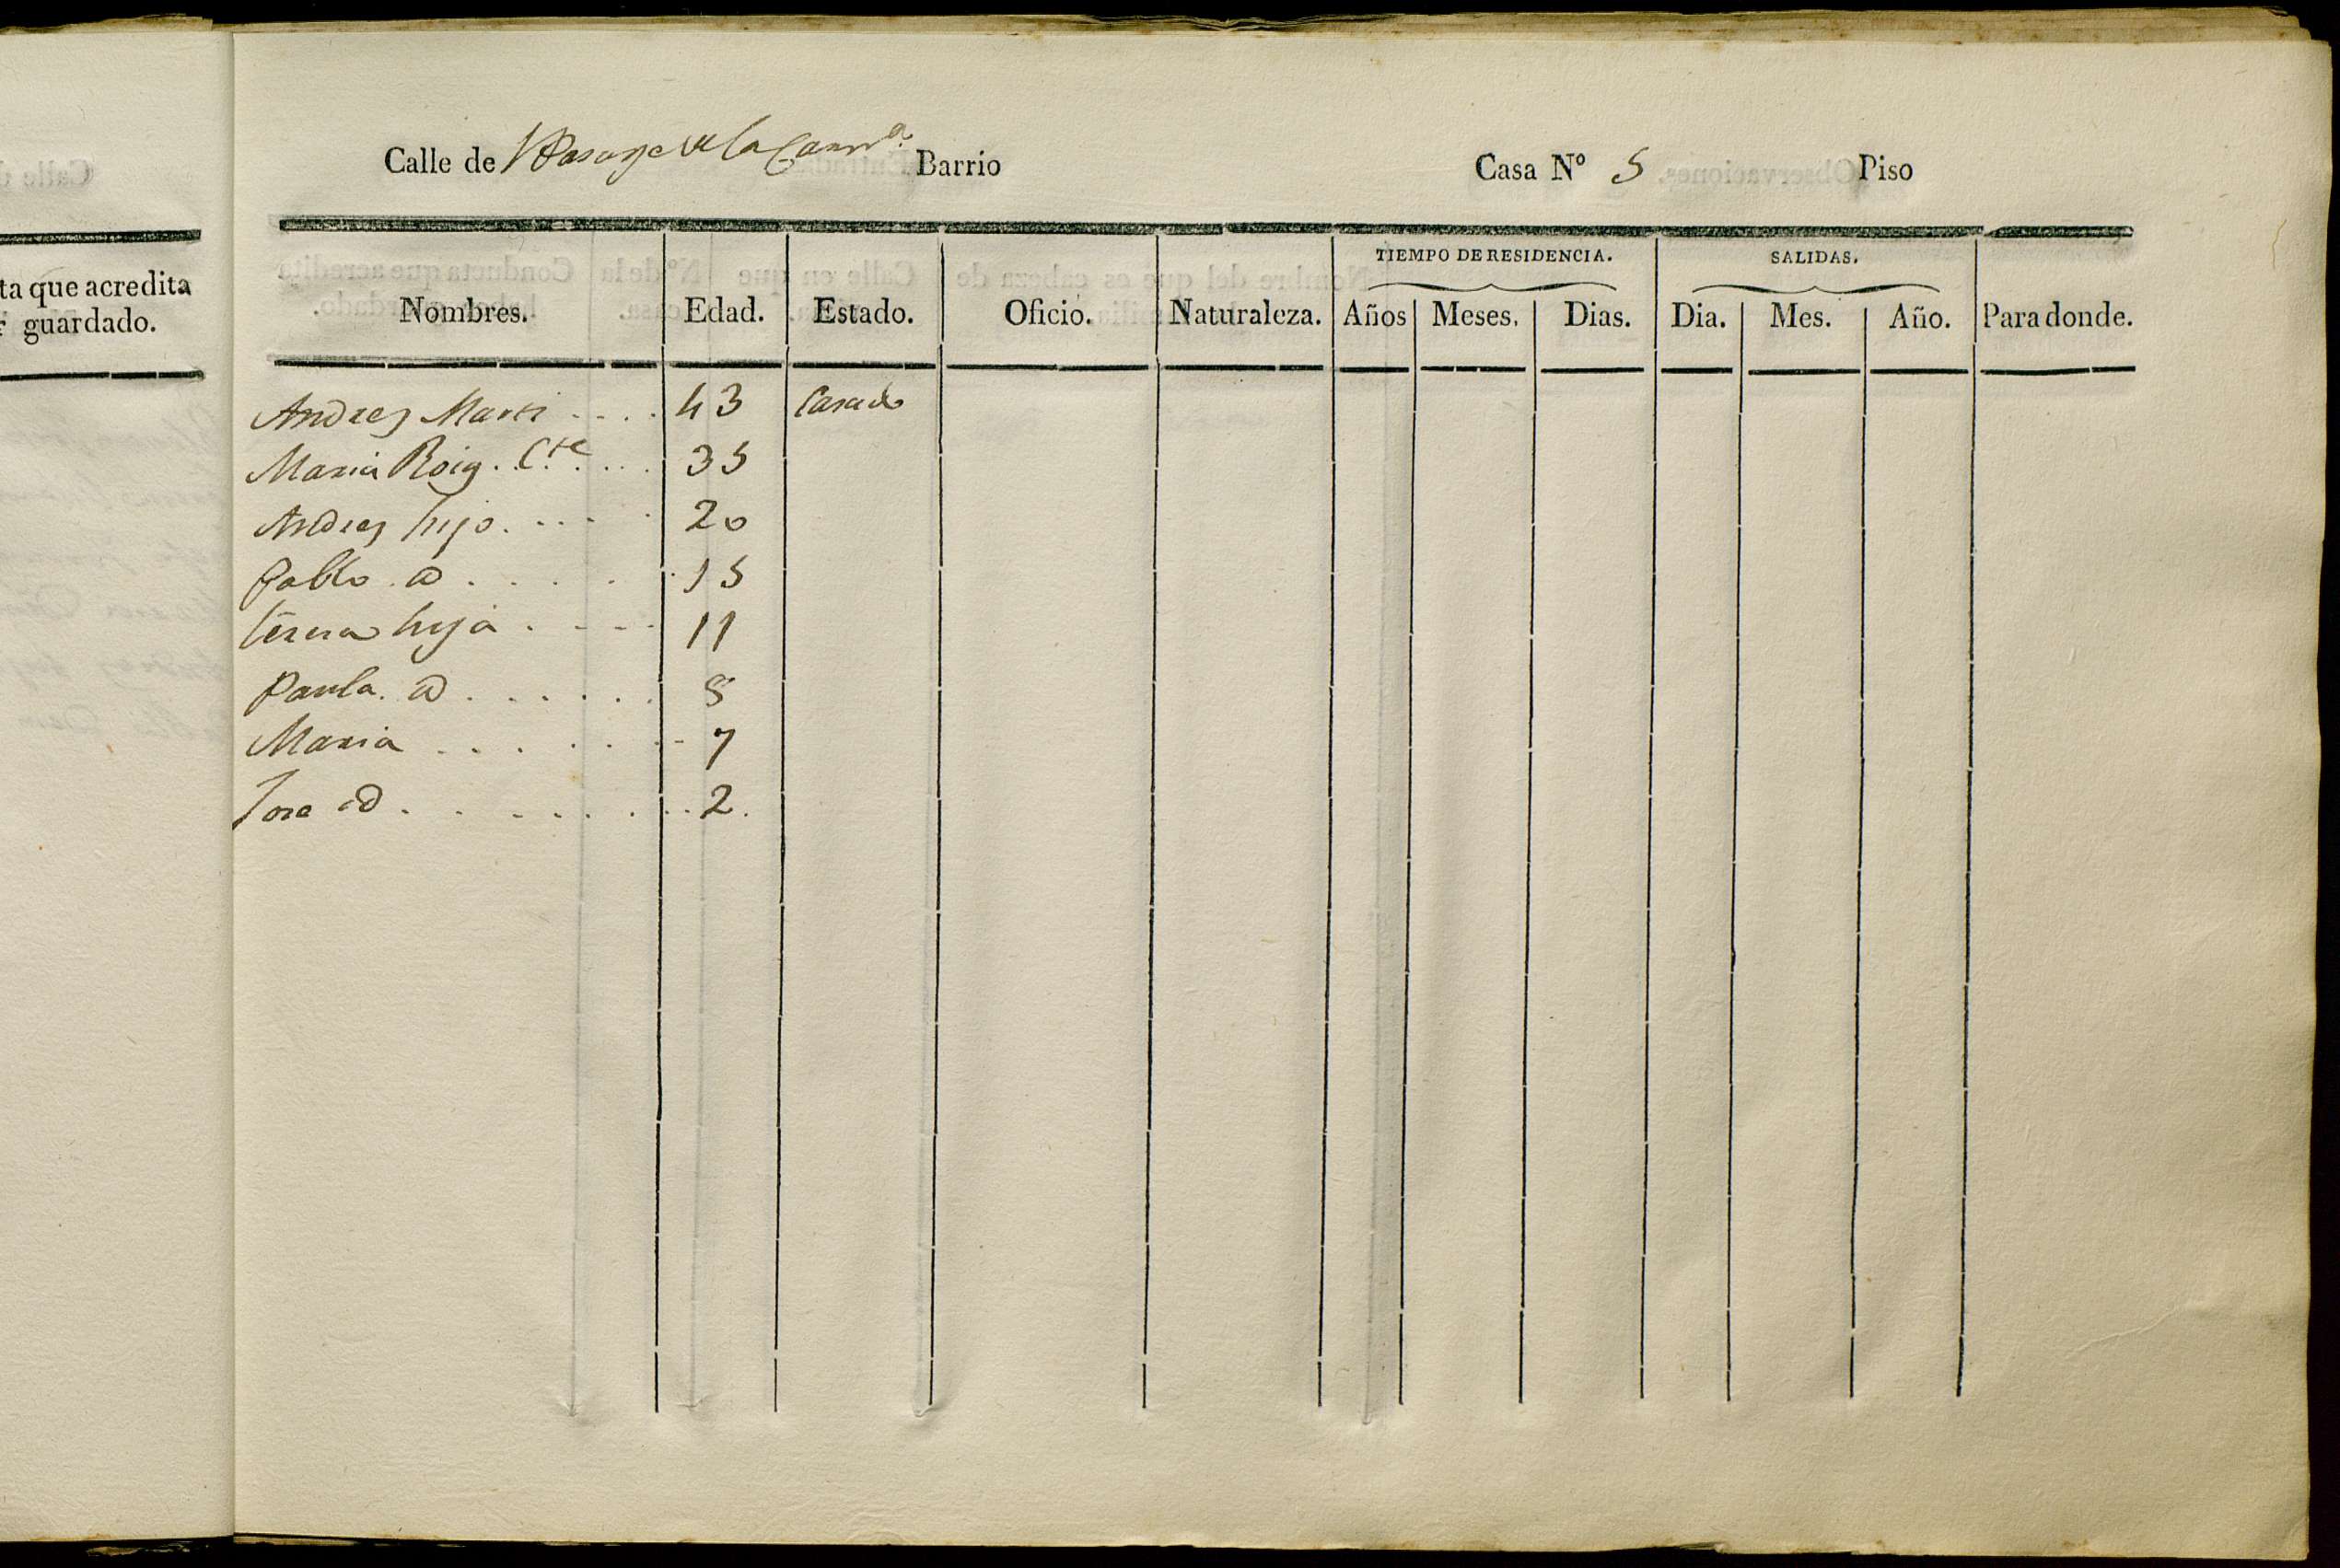 Calle de Pasage de la Carn.ª Barrio Casa Nº 5 Piso
ta que acredita
r guardado.
TIEMPO DE RESIDENCIA. SALIDAS.
Nombres. Edad. Estado. Oficio. Naturaleza. Años Meses. Dias. Dia. Mes. Año. Para donde.
Andres Marti .... 43 Casado
Maria Roig. C.te .... 35
Andres hijo. .... 20
Pablo. id ..... 15
teresa hija .... 11
Paula. id ...... 8
Maria ...... 7
Jose id ........ 2.